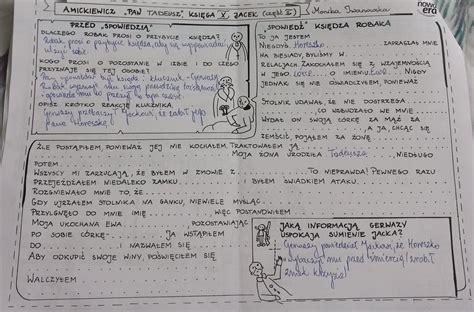 A. MICKIEWICZ „PAN TADEUSZ", KSIĘGA X. JACEK (część I)
Monika Iwanowska
nowa
era
PRZED „SPOWIEDZIĄ"
DLACZEGO ROBAK PROSI O PRZYBYCIE KSIĘDZA?
Robak prosi o przybycie księdza, aby się wyspowiadać
KOGO PROSI O POZOSTANIE W IZBIE I DO CZEGO
PRZYZNAJE SIĘ TEJ OSOBIE?
OPISZ KRÓTKO REAKCJĘ KLUCZNIKA.
Gerwazy przebaczył Jackowi, że zabił jego
pana Horeszkę.
SPOWIEDŹ KSIĘDZA ROBAKA
TO JA JESTEM
NIEGDYŚ Horeszko ZAPRASZAŁ MNIE
NA BIESIADY, BYLIŚMY W
RELACJACH. ZAKOCHAŁEM SIĘ Z WZAJEMNOŚCIĄ
W JEGO córce O IMIENIU Ewa. NIGDY
JEDNAK SIĘ NIE OŚWIADCZYŁEM, PONIEWAŻ
STOLNIK UDAWAŁ, ŻE NIE DOSTRZEGA
CO WZBUDZAŁO WE MNIE
WYDAŁ ON SWOJĄ CÓRKĘ ZA MĄŻ ZA
A JA, CHCĄC SIĘ
ZEMŚCIĆ, POJĄŁEM ZA ŻONĘ
ŹLE POSTĄPIŁEM, PONIEWAŻ JEJ NIE KOCHAŁEM, TRAKTOWAŁEM JĄ
MOJA ŻONA URODZIŁA Tadeusza NIEDŁUGO
POTEM
WSZYSCY MI ZARZUCAJĄ, ŻE BYŁEM W ZMOWIE Z TO NIEPRAWDA! PEWNEGO RAZU
PRZEJEŻDŻAŁEM NIEDALEKO ZAMKU BYŁEM ŚWIADKIEM ATAKU
ROZGNIEWAŁO MNIE TO, ŻE
GDY UJRZAŁEM STOLNIKA NA GANKU, NIEWIELE MYŚLĄC
PRZYLGNĘŁO DO MNIE IMIĘ WIĘC POSTANOWIŁEM
MOJA UKOCHANA EWA POZOSTAWIAJĄC
PO SOBIE CÓRKĘ JA WSTĄPIŁEM
DO I NAZWAŁEM SIĘ
ABY ODKUPIĆ SWOJE WINY, POŚWIĘCIŁEM SIĘ
WALCZYŁEM
JAKĄ INFORMACJĄ GERWAZY
USPOKAJA SUMIENIE JACKA?
Gerwazy powiedział Jackowi, że Horeszko
wybaczył mu przed śmiercią i zrobił
znak krzyża